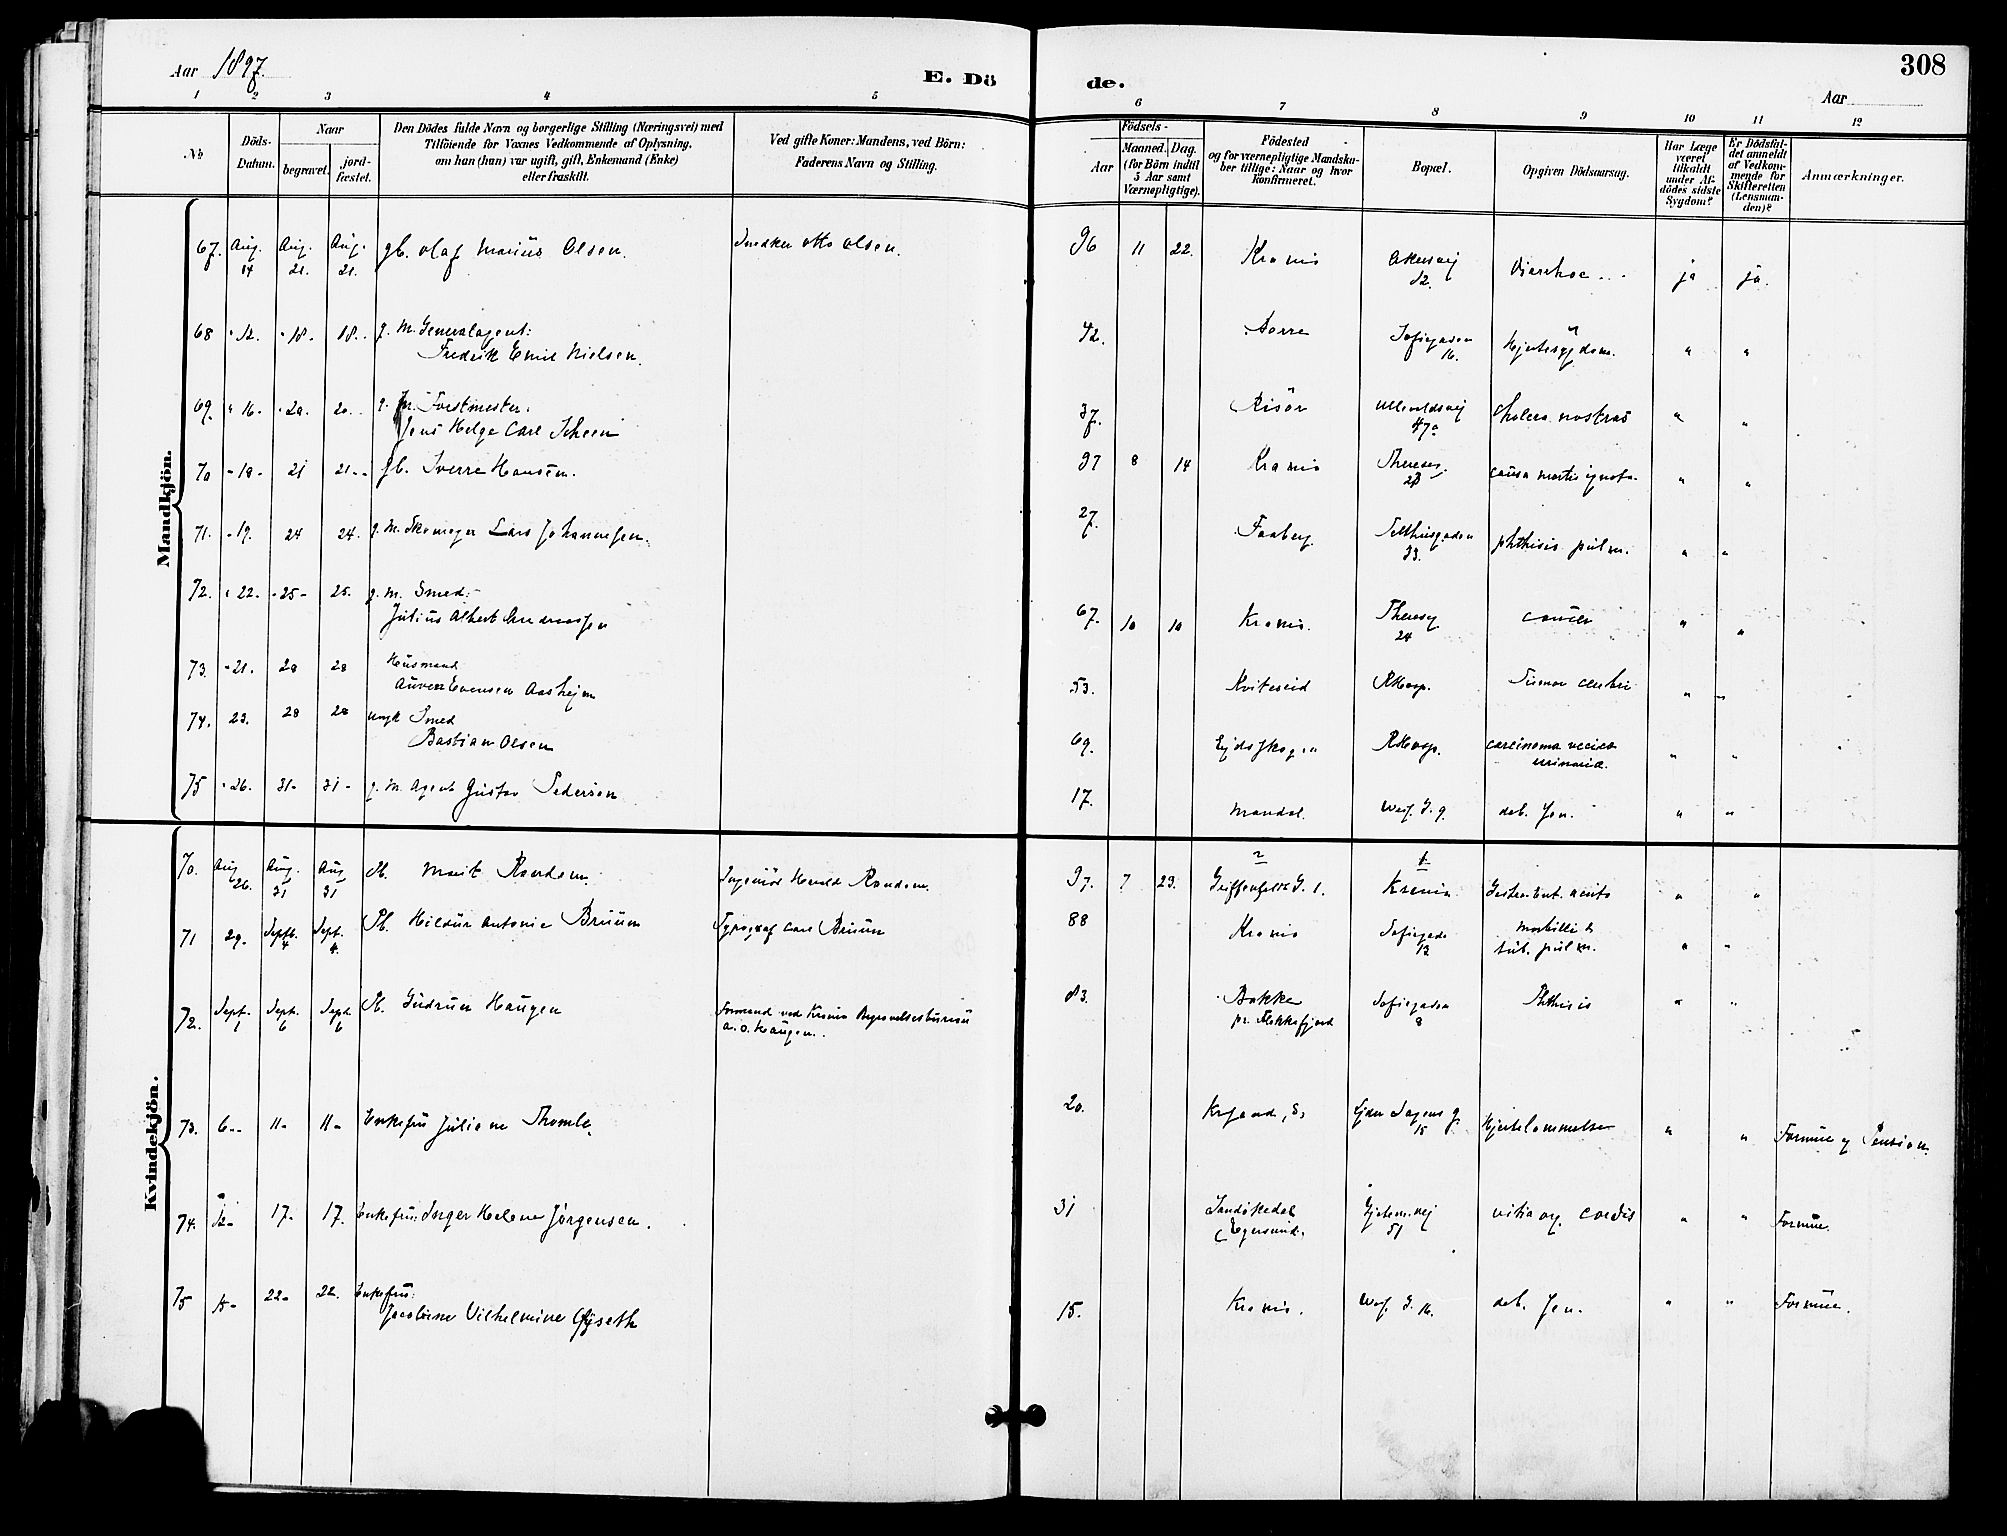 308
Aar 1897.
E. Dö de.
Aar
1 2 3 4 5 6 7 8 9 10 11 12
No
Döds-Datum.
Naar
begravet.
jord-fæstet.
Den Dödes fulde Navn og borgerlige Stilling (Næringsvei) med
Tilföiende for Voxnes Vedkommende af Oplysning,
om han (hun) var ugift, gift, Enkemand (Enke)
eller fraskilt.
Ved gifte Koner: Mandens, ved Börn:
Faderens Navn og Stilling.
Födsels-
Aar
Maaned. Dag.
(for Börn indtil
5 Aar samt
Værnepligtige).
Födested
og for værnepligtige Mandska-
ber tillige: Naar og hvor
konfirmeret.
Bopæl.
Opgiven Dödsaarsag.
Har Læge
været
tilkaldt
under Af-
dödes sidste
Sygdom?
Er Dödsfal-
det anmeldt
af Vedkom-
mende for
Skifteretten
(Lensman-
den)?
Anmærkninger.
Mandkjön.
67. Aug. 14 Aug. 21. Aug. 21. gb. Olaf Marius Olsen. Snedker Otto Olsen. 96 11 22. Krania Akersvej 52. Diarrhoe ja ja.
68 " 12. " 18. 18. g. m. Generalagent:
Fredrik Emil Nielsen. 42. Sofiegaden 16. Hjertesygdom. " "
69. " 16. " 20. 20. g. m. Forstmester:
Jens Helge Carl Scheen 37. Risör Ullevoldsvej 47a Cholera nostras " "
70 " 19. 21 21. gb. Sverre Hansen. 97 8 14 Krania Thereses. causa mortis ignota. " "
71. " 19. 24 24. g. m. Skomager Lars Johannesen. 27. Faaberg. Telthusgaden 33. phthisis pulm. " "
72. " 22. " 25. 25. g. m. Smed:
Julius Albert Andreassen 67. 10 10 Krania. Theresg 24 cancer " "
73. " 21. 28 28 Husmand
Evensen Aasheim 53. Kviteseid RHosp. Tumor cerebri " "
74. 23. 28 28 Smed
Bastian Olsen 69. Ejdskogen RHosp. carcinoma vesica
urinaria. " "
75 " 26. 31. 31. g. m. Agent Gustav Pedersen 17. Mandal. G. 9 deb. sen. " "
Kvindekjön.
70. Aug 26. Aug. 31 Aug 31 Pb. Marit Randem. Ingeniör Harald Randem. 97. 7 23. 2 Griffenfeldts G. 1. 1 Krania Gastro. Ent. acuta " "
71 29. Septb. 4 Sept. 4. Pb. Hildur Antonie Bruun Typograf Carl Bruun 88 Krania Sofiegade 12 Morbilli &
tub. pulm. " "
72. Sept. 1 Sept. 6 Sept. 6 Pb. Gudrun Haugen Formand ved Krania Begravelsesbureau
A. O. Haugen. 83. Bakke
pr. Flekkefjord Sofiegaden 8 Phthisis " "
73. 6. 11. 11. Enkefru Juliane Thomle. 20. Krsand, S. Ejler Sagens g. 15 Hjertelammelse " " Formue og Pension.
74. 12. 17. 17. Enkefru: Inger Helene Jörgensen. 31
Egersund. 51 vitia org. cordis " " Formue.
75 15. 22. 22. Enkefru:
Jacobine Vilhelmine Gjseth 15. Krania. G. 16. deb. sen. " " Formue.